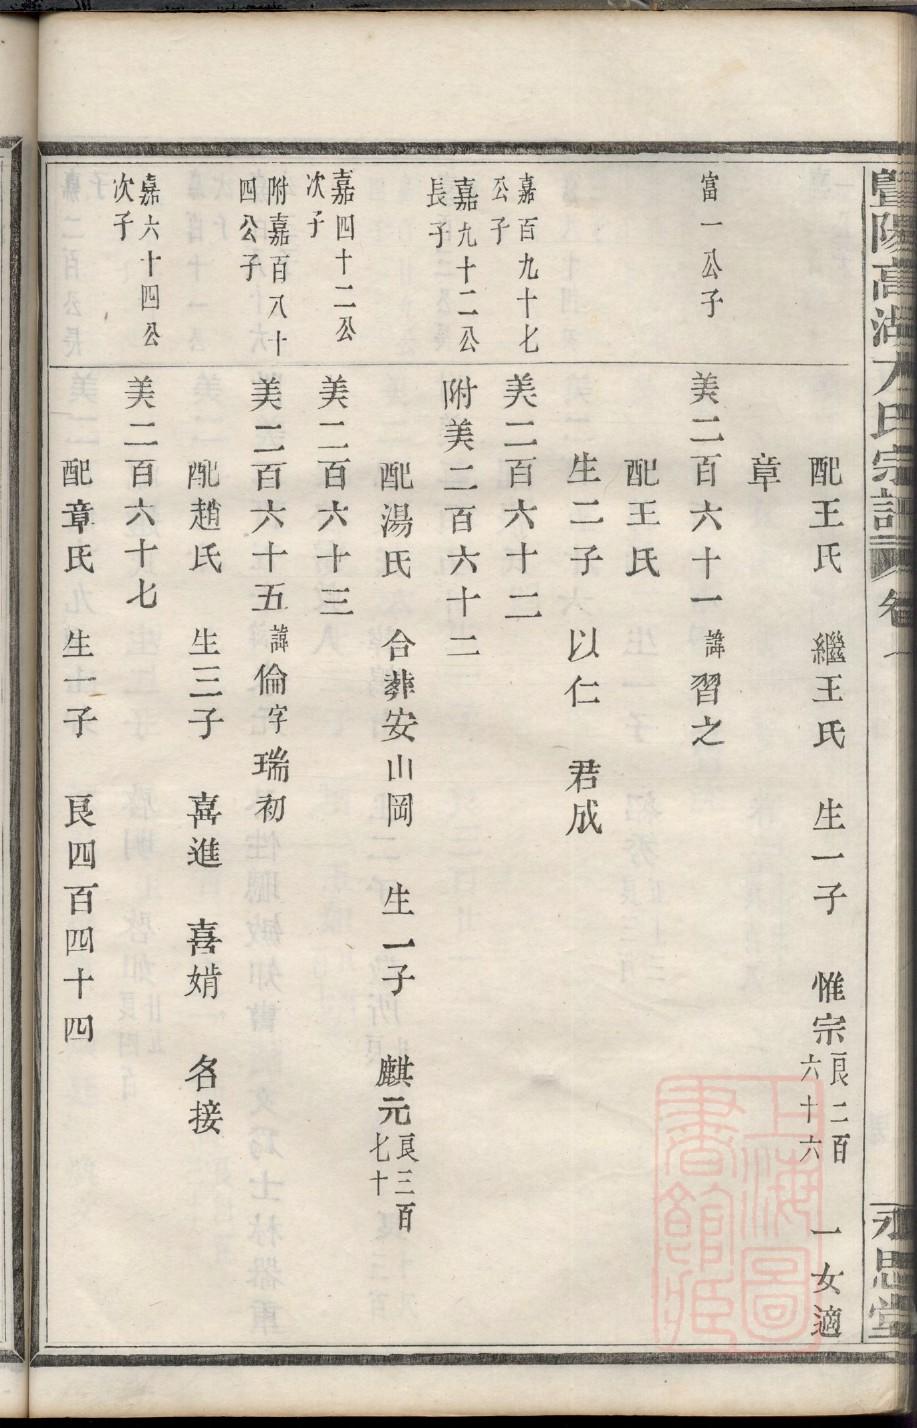 暨陽高湖方氏宗譜 卷一 永思堂
配王氏 繼王氏 生一子 惟宗良二百六十六 一女適
章
富一公子 美二百六十一諱習之
配王氏
生二子 以仁 君成
嘉百九十七公子 美二百六十二
嘉九十二公長子 附美二百六十二
配湯氏 合葬安山岡 生一子 麒元良三百七十
嘉四十二公次子 美二百六十三
附嘉百八十四公子 美二百六十五諱倫字瑞初
配趙氏 生三子 喜進 喜婧 名接
嘉六十四公次子 美二百六十七
配章氏 生一子 良四百四十四
上海圖書館藏